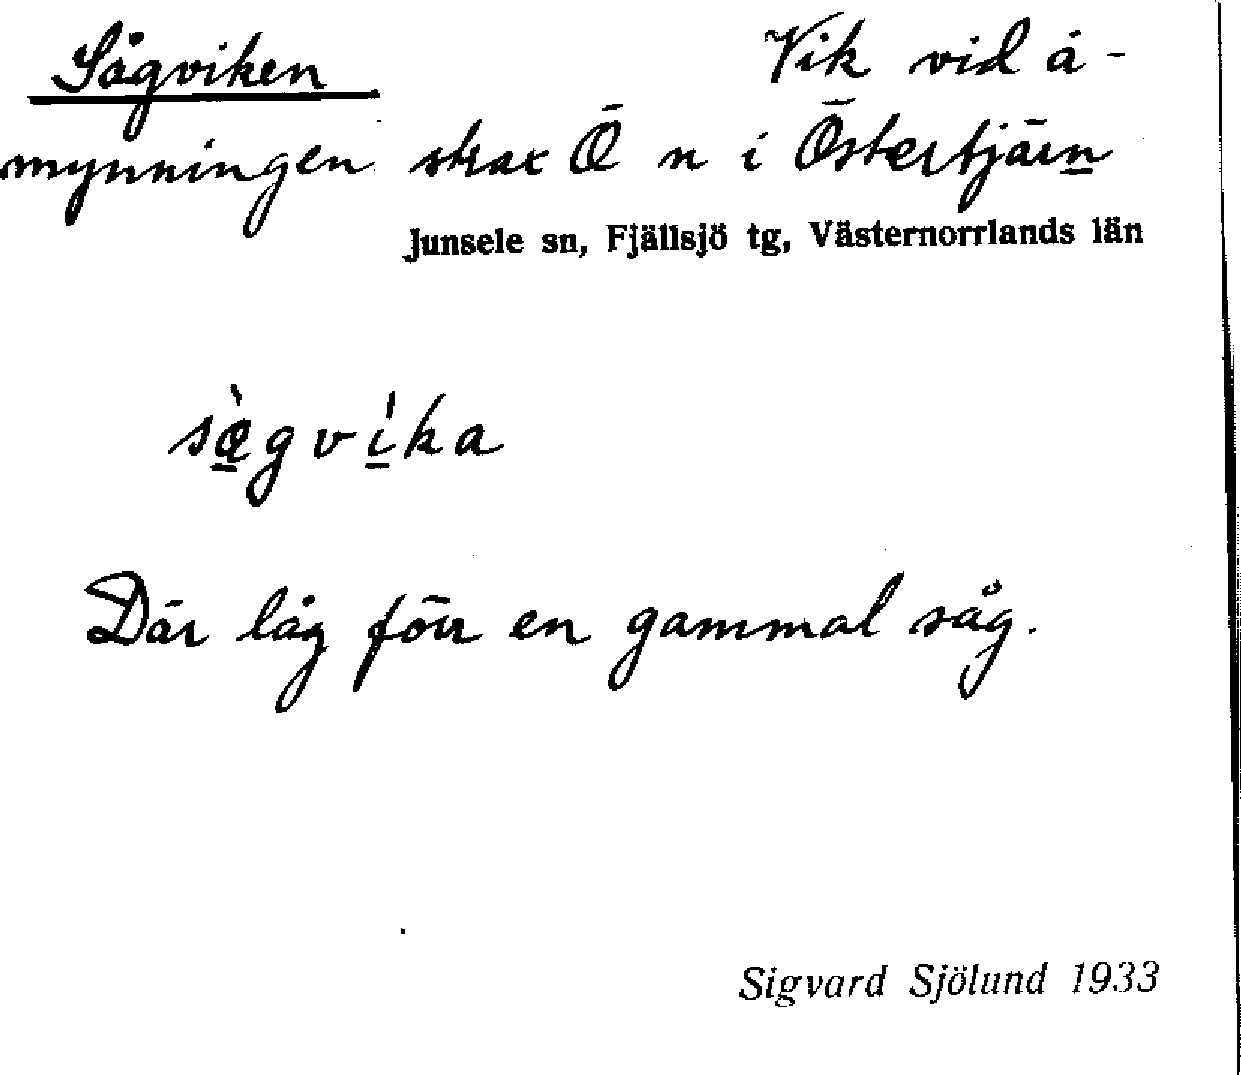 Sågviken Vik vid å-
mynningen strax Ö n i Östertjärn
Junsele sn, Fjällsjö tg, Västernorrlands län
sàgvíka
Där låg förr en gammal såg.
Sigvard Sjölund 1933